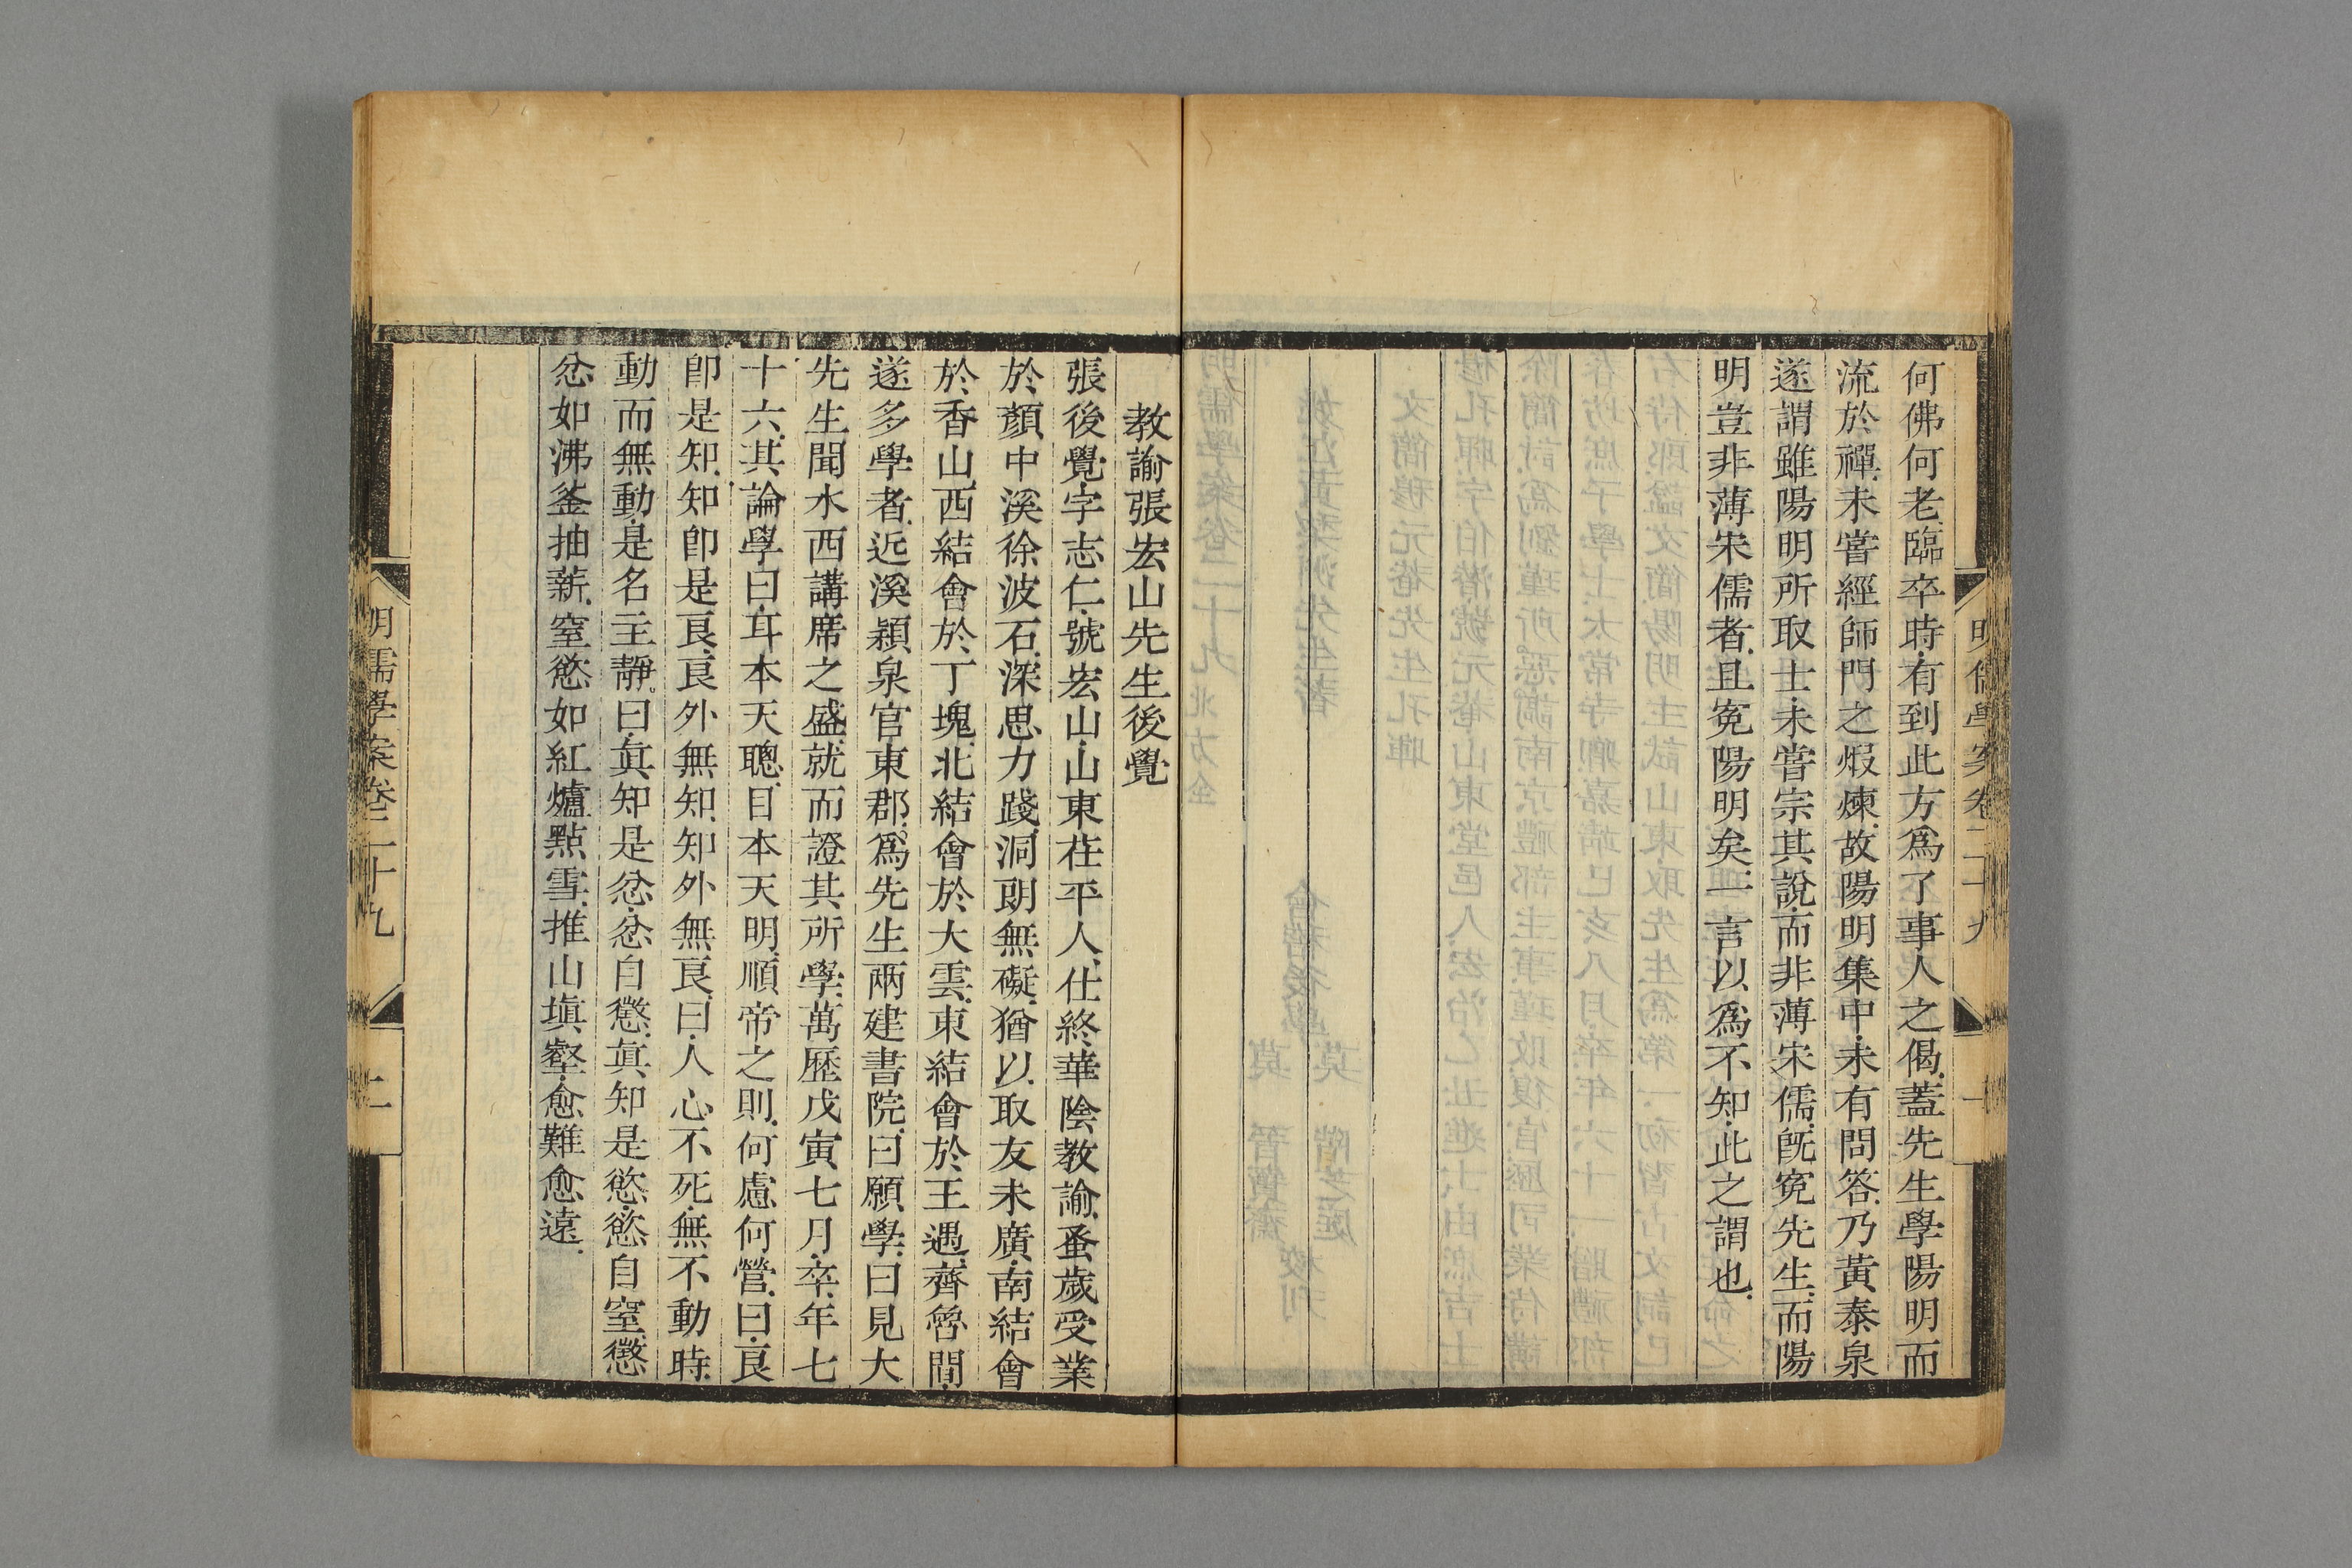 明儒學案卷二十九
一
何佛何老臨卒時有到此方爲了事人之偈蓋先生學陽明而
流於禪未嘗經師門之煅煉故陽明集中未有問答乃黃泰泉
遂謂雖陽明所取士未嘗宗其說而非薄宋儒旣寃先生而陽
明豈非薄宋儒者且寃陽明矣一言以爲不知此之謂也
教諭張宏山先生後覺
張後覺字志仁號宏山山東茌平人仕終華陰教諭蚤歲受業
於顏中溪徐波石深思力踐洞朗無礙猶以取友未廣南結會
於香山西結會於丁塊北結會於大雲東結會於王遇齊魯間
遂多學者近溪穎泉官東郡爲先生兩建書院曰願學曰見大
先生聞水西講席之盛就而證其所學萬歷戊寅七月卒年七
十六其論學曰耳本天聰目本天明順帝之則何慮何營曰良
卽是知知卽是良良外無知知外無良曰人心不死無不動時
動而無動是名主靜曰眞知是忿忿自懲眞知是慾慾自窒懲
忿如沸釜抽薪窒慾如紅爐點雪推山塡壑愈難愈遠
明儒學案卷二十九
二